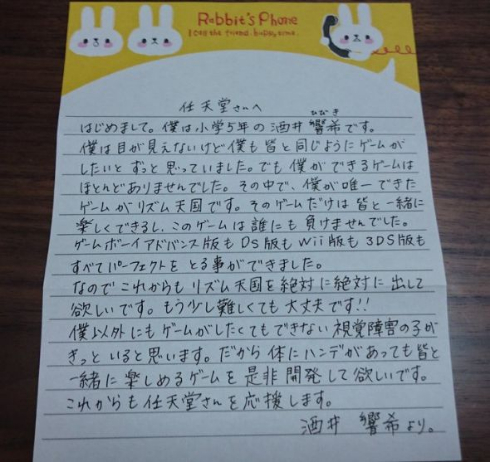 Rabbit's Phone
任天堂さんへ
はじめまして。僕は小学5年の酒井 響希です。
ひびき
僕は目が見えないけど僕も皆と同じようにゲームが
したいとずっと思っていました。でも僕ができるゲームは
ほとんどありませんでした。その中で、僕が唯一できた
ゲームがリズム天国です。そのゲームだけは皆と一緒に
楽しくできるし、このゲームは誰にも負けませんでした。
ゲームボーイアドバンス版もDS版もWii版も3DS版も
すべてパーフェクトをとる事ができました。
なのでこれからもリズム天国を絶対に絶対に出して
欲しいです。もう少し難しくても大丈夫です!!
僕以外にもゲームがしたくてもできない視覚障害の子が
きっといると思います。だから体にハンデがあっても皆と
一緒に楽しめるゲームを是非開発して欲しいです。
これからも任天堂さんを応援します。
酒井 響希より。